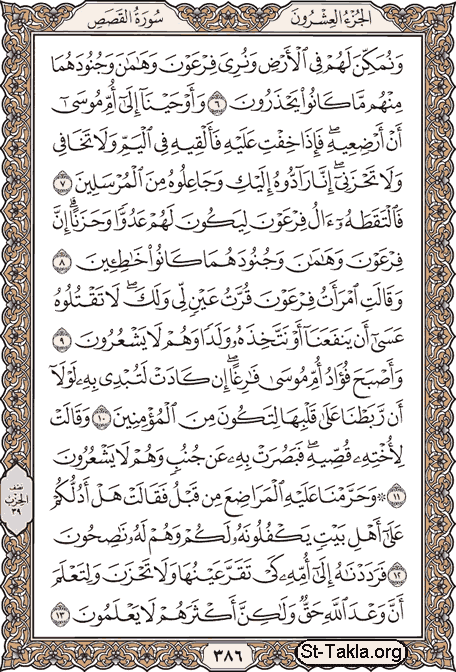 الجُزْءُ العِشْرُونَ
سُورَةُ القَصَصِ
وَنُمَكِّنَ لَهُمْ فِي ٱلْأَرْضِ وَنُرِيَ فِرْعَوْنَ وَهَٰمَٰنَ وَجُنُودَهُمَا
مِنْهُم مَّا كَانُوا۟ يَحْذَرُونَ ٦ وَأَوْحَيْنَآ إِلَىٰٓ أُمِّ مُوسَىٰٓ
أَنْ أَرْضِعِيهِ ۖ فَإِذَا خِفْتِ عَلَيْهِ فَأَلْقِيهِ فِي ٱلْيَمِّ وَلَا تَخَافِي
وَلَا تَحْزَنِيٓ ۖ إِنَّا رَآدُّوهُ إِلَيْكِ وَجَاعِلُوهُ مِنَ ٱلْمُرْسَلِينَ ٧
فَٱلْتَقَطَهُۥٓ ءَالُ فِرْعَوْنَ لِيَكُونَ لَهُمْ عَدُوًّا وَحَزَنًا ۗ إِنَّ
فِرْعَوْنَ وَهَٰمَٰنَ وَجُنُودَهُمَا كَانُوا۟ خَٰطِـِٔينَ ٨
وَقَالَتِ ٱمْرَأَتُ فِرْعَوْنَ قُرَّتُ عَيْنٍ لِّي وَلَكَ ۖ لَا تَقْتُلُوهُ
عَسَىٰٓ أَن يَنفَعَنَآ أَوْ نَتَّخِذَهُۥ وَلَدًا وَهُمْ لَا يَشْعُرُونَ ٩
وَأَصْبَحَ فُؤَادُ أُمِّ مُوسَىٰ فَٰرِغًا ۖ إِن كَادَتْ لَتُبْدِي بِهِۦ لَوْلَآ
أَن رَّبَطْنَا عَلَىٰ قَلْبِهَا لِتَكُونَ مِنَ ٱلْمُؤْمِنِينَ ١٠ وَقَالَتْ
لِأُخْتِهِۦ قُصِّيهِ ۖ فَبَصُرَتْ بِهِۦ عَن جُنُبٍ وَهُمْ لَا يَشْعُرُونَ
١١ ۞ وَحَرَّمْنَا عَلَيْهِ ٱلْمَرَاضِعَ مِن قَبْلُ فَقَالَتْ هَلْ أَدُلُّكُمْ
عَلَىٰٓ أَهْلِ بَيْتٍ يَكْفُلُونَهُۥ لَكُمْ وَهُمْ لَهُۥ نَٰصِحُونَ
١٢ فَرَدَدْنَٰهُ إِلَىٰٓ أُمِّهِۦ كَيْ تَقَرَّ عَيْنُهَا وَلَا تَحْزَنَ وَلِتَعْلَمَ
أَنَّ وَعْدَ ٱللَّهِ حَقٌّ وَلَٰكِنَّ أَكْثَرَهُمْ لَا يَعْلَمُونَ ١٣
نصف
الحزب
٣٩
٣٨٦
St-Takla.org